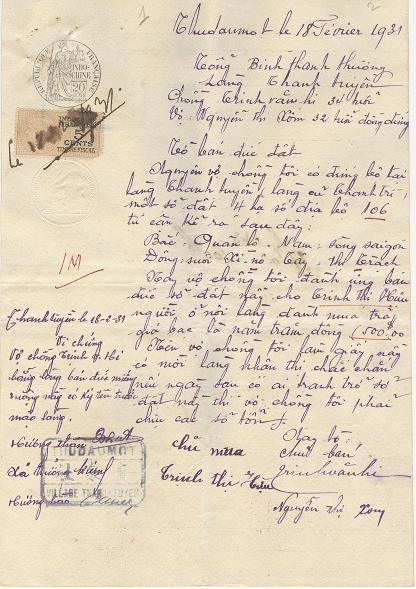 1
2
Thudaumot le 18 Février 1931
RÉPUBLIQUE FRANÇAISE
INDO-CHINE
20
Tổng Bình thanh thượng
Làng Thanh tuyền
Chồng Trịnh văn hi 34 tuổi
Vợ Nguyễn thị Xóm 32 tuổi đồng đứng
5
CENTS
TIMBRE FISCAL
Tờ bán dức đất
Nguyên vợ chồng tôi có đứng bộ tại
làng Thanh tuyền (làng cũ Thanh trì)
một sở đất số địa bộ 106
tứ cận kể ra sau đây:
Bắc: Quản lộ, Nam: sông Saigon
Đông: suối Tây: Thị Trạch
Nay vợ chồng tôi đành ưng bán
dức sở đất nầy cho Trịnh thị
người ở nơi làng đành mua trả
giá bạc là năm trăm đồng (500$00)
Nên vợ chồng tôi làm giấy nầy
có mời làng nhận thị chắc chắn
nếu ngày sau có ai tranh trở sở
đất nầy thì vợ chồng tôi phải
chịu các số tổn
1M
Thanh tuyền le 18-2-31
Vi chứng
Vợ chồng Trịnh v. Hi
bằng lòng bán dức miếng
ruộng nầy có ký tên trước
mặt làng
Hương thân
THUDAUMOT
VILLAGE THANH TUYEN
Xã trưởng
Hương hào
chủ mua
Trịnh thị
Nay tờ
Chủ bán
Trịnh văn hi
Nguyễn thị Xom